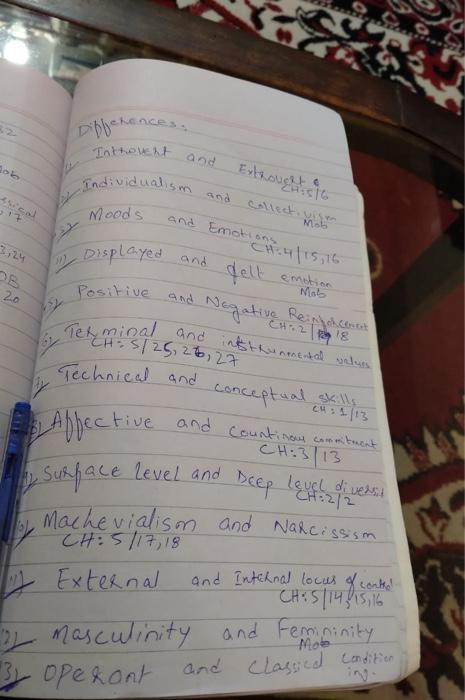 32
Mob
3,24
OB
20
Differences:
1) Introvert and Extrovert
CH:5/6
2) Individualism and collectivism
Mob
3) Moods and Emotions
CH:4/15,16
4) Displayed and felt emotion
Mob
5) Positive and Negative Reinforcement
CH:2/18
6) Terminal and instrunmental values
CH:5/25,26,27
7) Technical and conceptual skills
CH:1/13
8) Affective and countinous commitment
CH:3/13
9) Surface level and Deep level diversit
CH:2/2
10) Machevialism and Narcissism
CH:5/17,18
11) External and Internal locus of control
CH:5/14,15,16
12) Masculinity and Femininity
Mob
13) Operant and classical condition
ing.